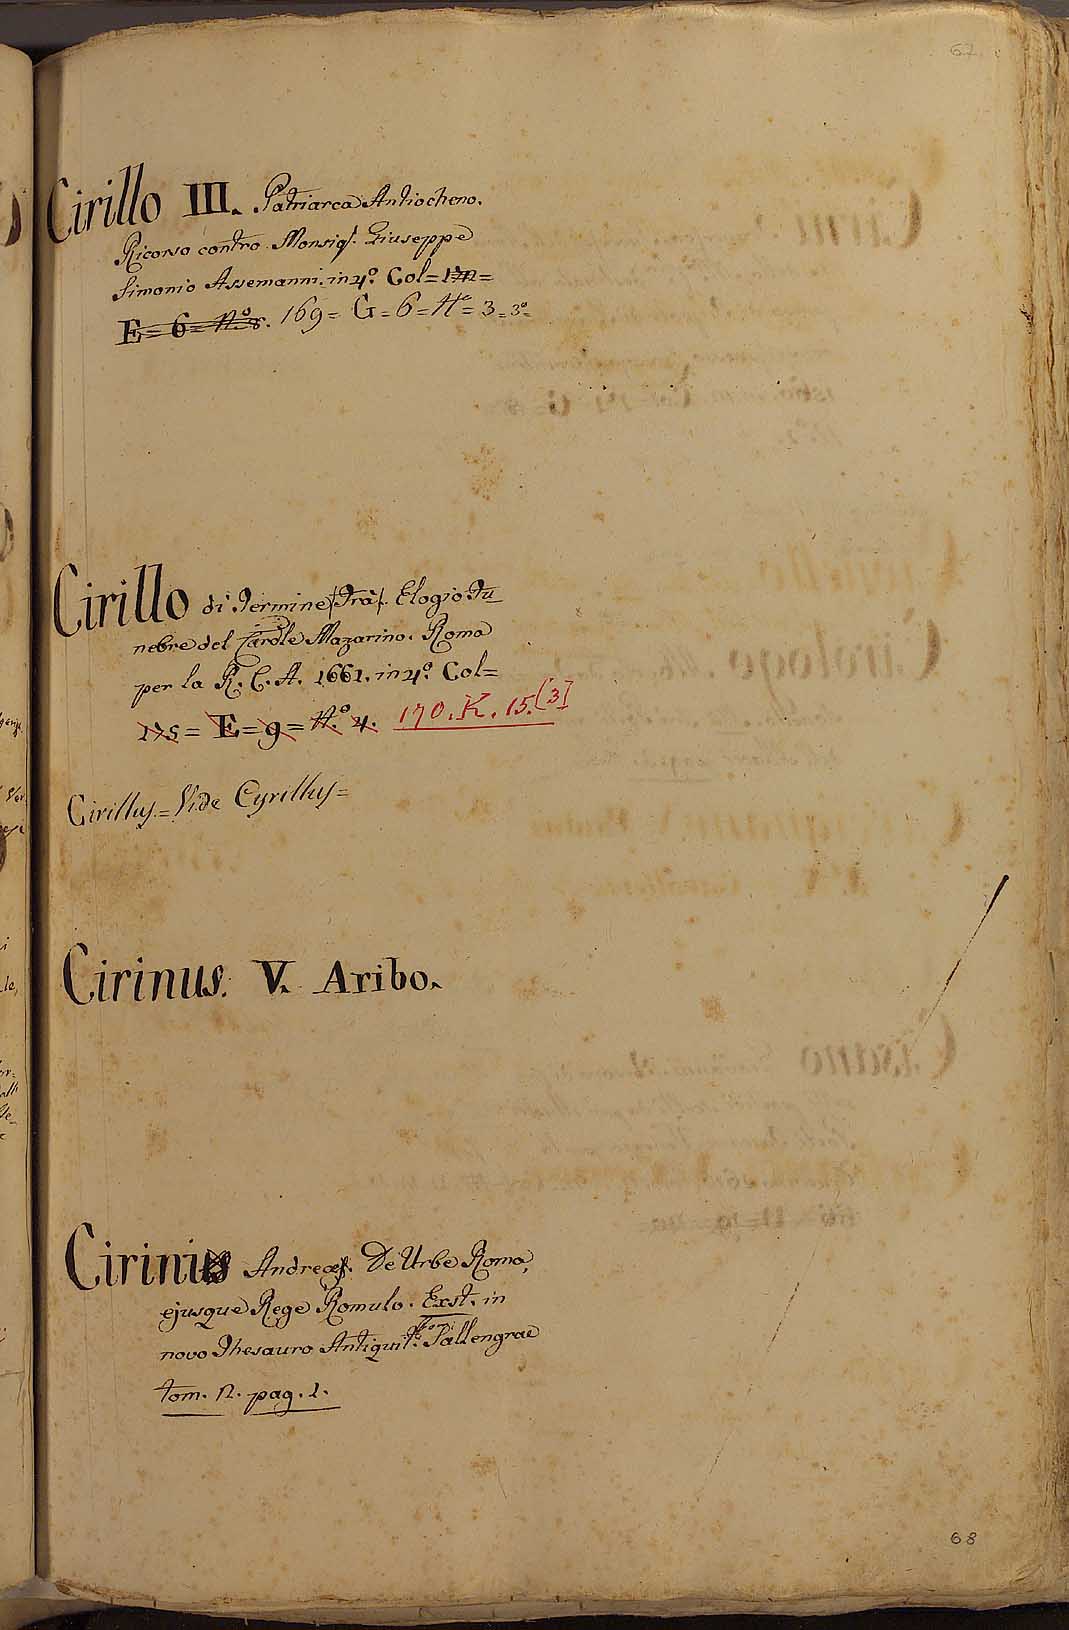 67.
Cirillo III. Patriarca Antiocheno.
Ricorso contro Monsigʳ. Giuseppe
Simonio Assemanni. in 4º. Col=
E= 6= Nº 8. 169= G= 6= Nº= 3= 3º=
Cirillo di Termine /Frà/. Elogio Fu=
nebre del Cardle Mazarino. Roma
per la R. C. A. 1661. in 4º. Col=
175= E= 9= N.º 4. 170. K. 15.[3]
Cirillus= Vide Cyrillus=
Cirinus. V. Aribo.
Cirini Andreæ. De Urbe Roma,
ejusque Rege Romulo. Exst. in
novo Thesauro Antiquit: Rom: Sallengrae
tom. 2. pag. 1.
68